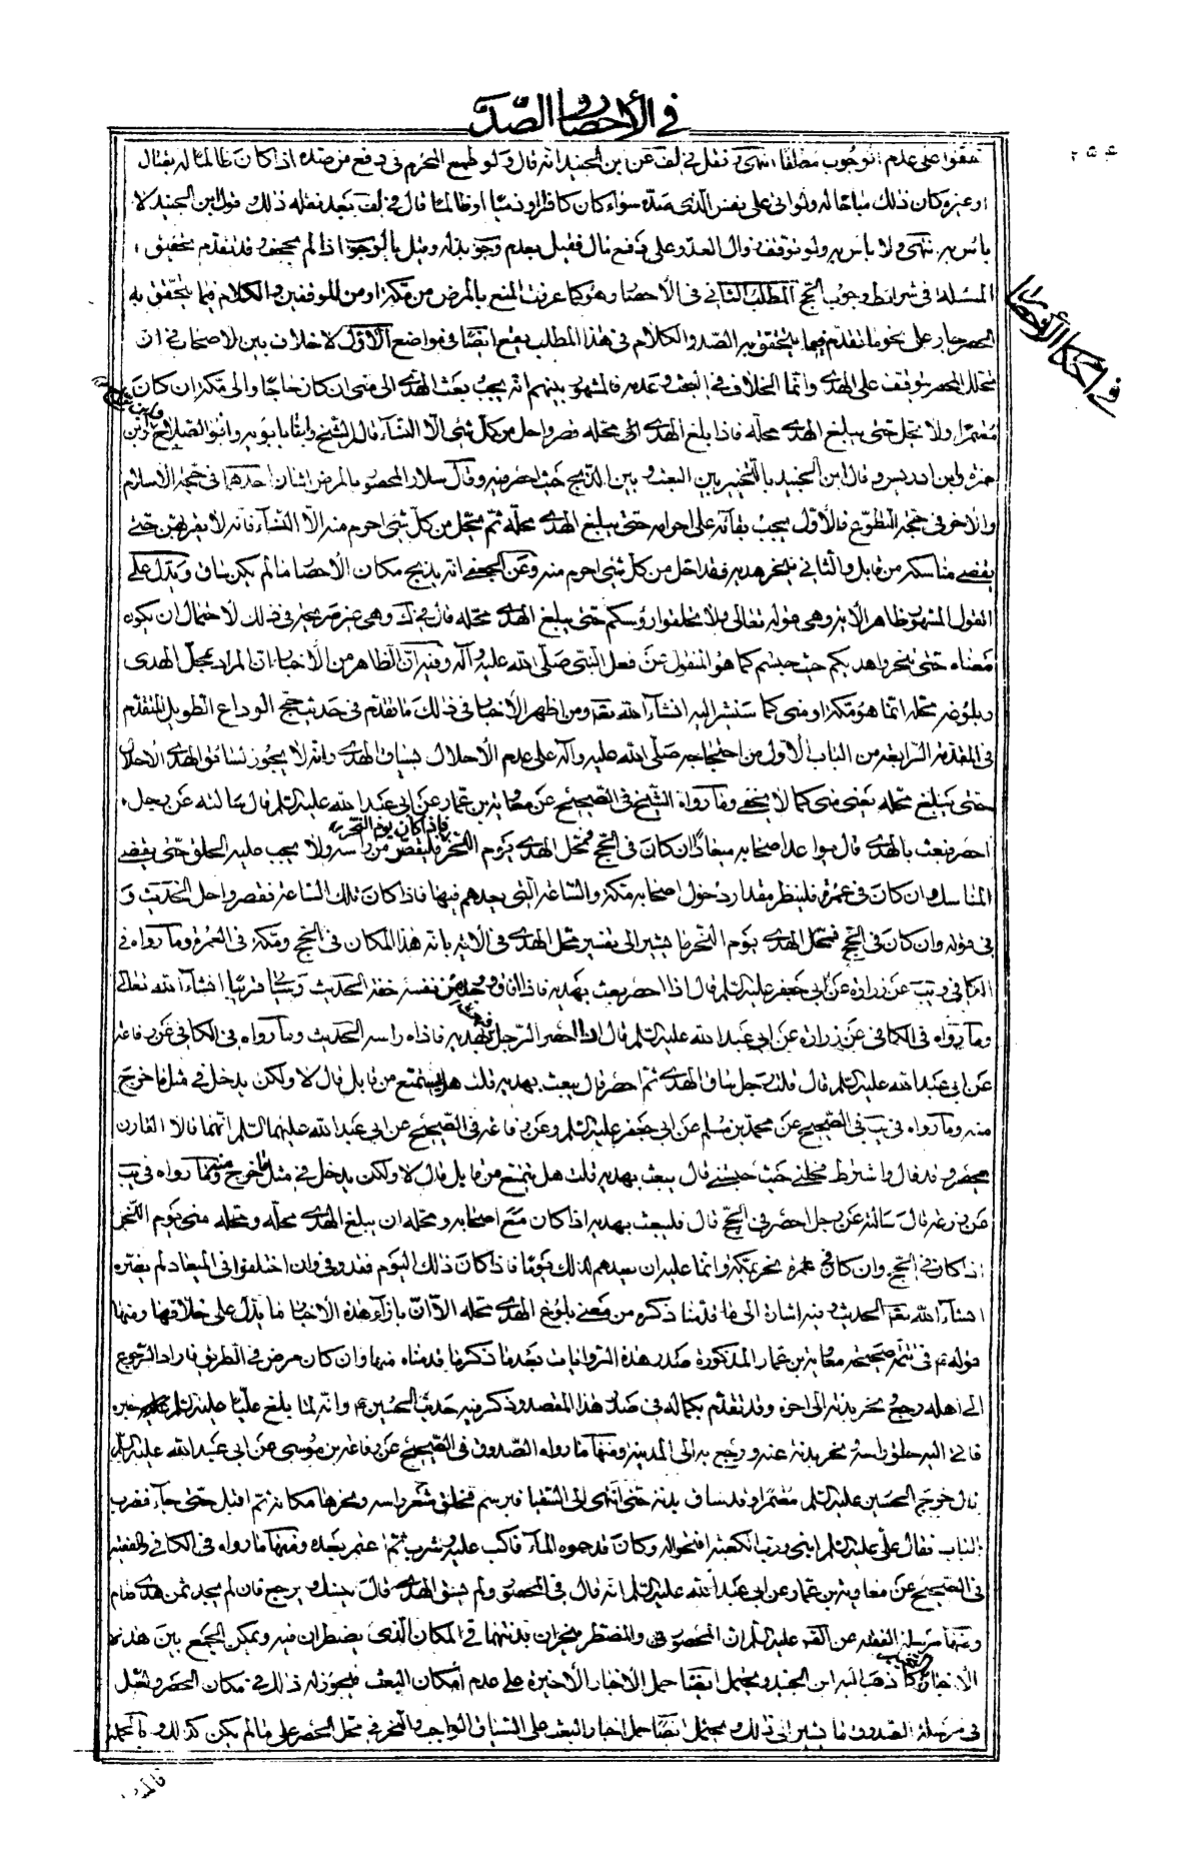 في الأحصار والصدّ
٢٥٤
اتفقوا على عدم الوجوب مطلقا انتهى ونقل في لف عن ابن الجنيد انه قال ولو طمع المحرم في دفع من صده اذا كان ظالما له بقتال
او غيره كان ذلك مباحا له ولو اتى على نفس الذي صدّه سواء كان كافرا او ذميا او ظالما قال في لف بعد نقله ذلك وقول ابن الجنيد لا
باس به انتهى ولا باس به ولو توقف زوال العدو على دفع مال فقيل بعدم وجوبه وقيل بالوجوب اذا لم يجحف وقد تقدم تحقيق
المسئلة في شرائط وجوب الحج المطلب الثاني في الأحصار وهو كما عرفت المنع بالمرض من مكة او من الموقفين والكلام فيما يتحقق به
في احكام الأحصار
الحصر جار على نحو ما تقدم فيما يتحقق به الصد والكلام في هذا المطلب يقع ايضا في مواضع الأوّل لا خلاف بين الاصحاب في ان
تحلل المحصر يتوقف على الهدي وانما الخلاف في البعث وعدمه فالمشهور بينهم انه يجب بعث الهدي الى منى ان كان حاجا والى مكة ان كان
معتمرا ولا يحل حتى يبلغ الهدي محله فاذا بلغ الهدي الى محله قصر واحل من كل شئ الا النساء قاله الشيخ وابنا بابويه وابو الصلاح وابن
حمزة وابن ادريس وقال ابن الجنيد بالتخيير بين البعث وبين الذبح حيث احصر فيه وقال سلار المحصور بالمرض اثنان احدهما في حجة الاسلام
والآخر في حجة التطوع فالأول يجب بقائه على احرامه حتى يبلغ الهدي محلّه ثم يتحلل من كل شئ احرم منه الّا النساء فانه لا يقربهن حتى
يقضي مناسكه من قابل والثاني ينحر هديه وقد احل من كل شئ احرم منه وعن الجعفي انه يذبح مكان الأحصار ما لم يكن ساق ويدل على
القول المشهور ظاهر الآية وهي قوله تعالى ولا تحلقوا رؤسكم حتى يبلغ الهدي محله قال في ك وهي غير صريحة في ذلك لاحتمال ان يكون
معناه حتى تنحروا هديكم حيث حبستم كما هو المنقول عن فعل النبي صلّى الله عليه وآله وفيه ان الظاهر من الأخبار ان المراد بمحل الهدى
وبلوغه محله انما هو مكة او منى كما سنشير اليه انشاء الله تعه ومن اظهر الأخبار في ذلك ما تقدم في حديث حج الوداع الطويل المتقدم
في المقدمة الرابعة من الباب الاول من احتجاجه صلّى الله عليه وآله على عدم الأحلال بسياق الهدي وانه لا يجوز لسائق الهدي الاحلال
حتى يبلغ محله يعني منى كما لا يخفى وما رواه الشيخ في الصحيح عن معاوية بن عمار عن ابي عبد الله عليه السلم قال سالته عن رجل
احصر فبعث بالهدي قال يواعد اصحابه ميعادا ان كان في الحج فمحل الهدي يوم النحر فاذا كان يوم النحر فليقصر من راسه ولا يجب عليه الحلق حتى يقضي
المناسك وان كان في عمرة فلينظر مقدار دخول اصحابه مكة والساعة التي يعدهم فيها فاذا كان تلك الساعة قصر واحل الحديث و
في قوله وان كان في الحج فمحل الهدي يوم النحر ما يشير الى تفسير محل الهدي في الآية بانه هذا المكان في الحج ومكة في العمرة وما رواه في
الكافي ويب عن زرارة عن ابي جعفر عليه السلم قال اذا احصر بعث بهديه فاذا افاق ووجد من نفسه خفة الحديث وسياتي قريبا انشاء الله تعالى
وما رواه في الكافي عن زرارة عن ابي عبد الله عليه السلم قال اذا احصر الرجل فبعث بهديه فاذاه راسه الحديث وما رواه في الكافي عن رفاعة
عن ابي عبد الله عليه السلم قال قلت رجل ساق الهدي ثم احصر قال يبعث بهديه قلت هل يستمتع من قابل قال لا ولكن يدخل في مثل ما خرج
منه وما رواه في يب في الصحيح عن محمد بن مسلم عن ابي جعفر عليه السلم وعن رفاعة في الصحيح عن ابي عبد الله عليهما السلم انهما قالا القارن
يحصر وقد قال واشترط فحلني حيث حبستني قال يبعث بهديه قلت هل يتمتع من قابل قال لا ولكن يدخل في مثل ما خرج منه وما رواه في يب
عن زرعة قال سالته عن رجل احصر في الحج قال فليبعث بهديه اذا كان مع اصحابه ومحله ان يبلغ الهدي محلّه ومحله منى يوم النحر
اذا كان في الحج وان كان في عمرة نحر بمكة وانما عليه ان يعدهم لذلك يوما فاذا كان ذلك اليوم فقد وفى وان اختلفوا في الميعاد لم يضره
انشاء الله تعه الحديث وفيه اشارة الى ما قدمنا ذكره من معنى بلوغ الهدي محله الّا ان بازاء هذه الأخبار ما يدل على خلافها ومنها
قوله ع في تتمة صحيحة معاوية بن عمار المذكورة صدر هذه الروايات بعد ما ذكر ما قدمناه منها وان كان مرض في الطريق فاراد الرجوع
الى اهله رجع ونحر بدنة الى اخره وقد تقدم بكماله في صدر هذا المقصد وذكر فيه حديث الحسين ع وانه لما بلغ عليا عليه السلم خبره
فاتى اليه حلق راسه ونحر بدنة عنه ورجع به الى المدينة ومنها ما رواه الصدوق في الصحيح عن رفاعة بن موسى عن ابي عبد الله عليه السلم
قال خرج الحسين عليه السلم معتمرا وقد ساق بدنة حتى انتهى الى السقيا فبرسم فحلق شعر راسه ونحرها مكانه ثم اقبل حتى جاء فضرب
الباب فقال علي عليه السلم ابني ورب الكعبة افتحوا له وكان قد حموه الماء فاكب عليه فشرب ثم اعتمر بعده ومنها ما رواه في الكافي والفقيه
في الصحيح عن معاوية بن عمار عن ابي عبد الله عليه السلم انه قال في المحصور ولم يسق الهدي قال ينسك ويرجع فان لم يجد ثمن هدي صام
ومنها مرسلة الفقيه عن الصه عليه السلم ان المحصور والمضطر ينحران بدنتهما في المكان الذي يضطران فيه ويمكن الجمع بين هذه
الأخبار كما ذهب اليه ابن الجنيد ويحتمل ايضا حمل الأخبار الأخيرة على عدم امكان البعث فيجوز له ذلك في مكان الحصر ولعل
في مرسلة الصدوق ما يشير الى ذلك ويحتمل ايضا حمل اخبار البعث على السياق الواجب والنحر في محل الحصر على ما لم يكن كذلك وبالجملة